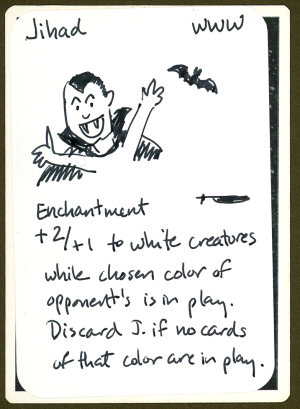 Jihad WWW
Enchantment
+2/+1 to white creatures
while chosen color of
opponent's is in play.
Discard J. if no cards
of that color are in play.